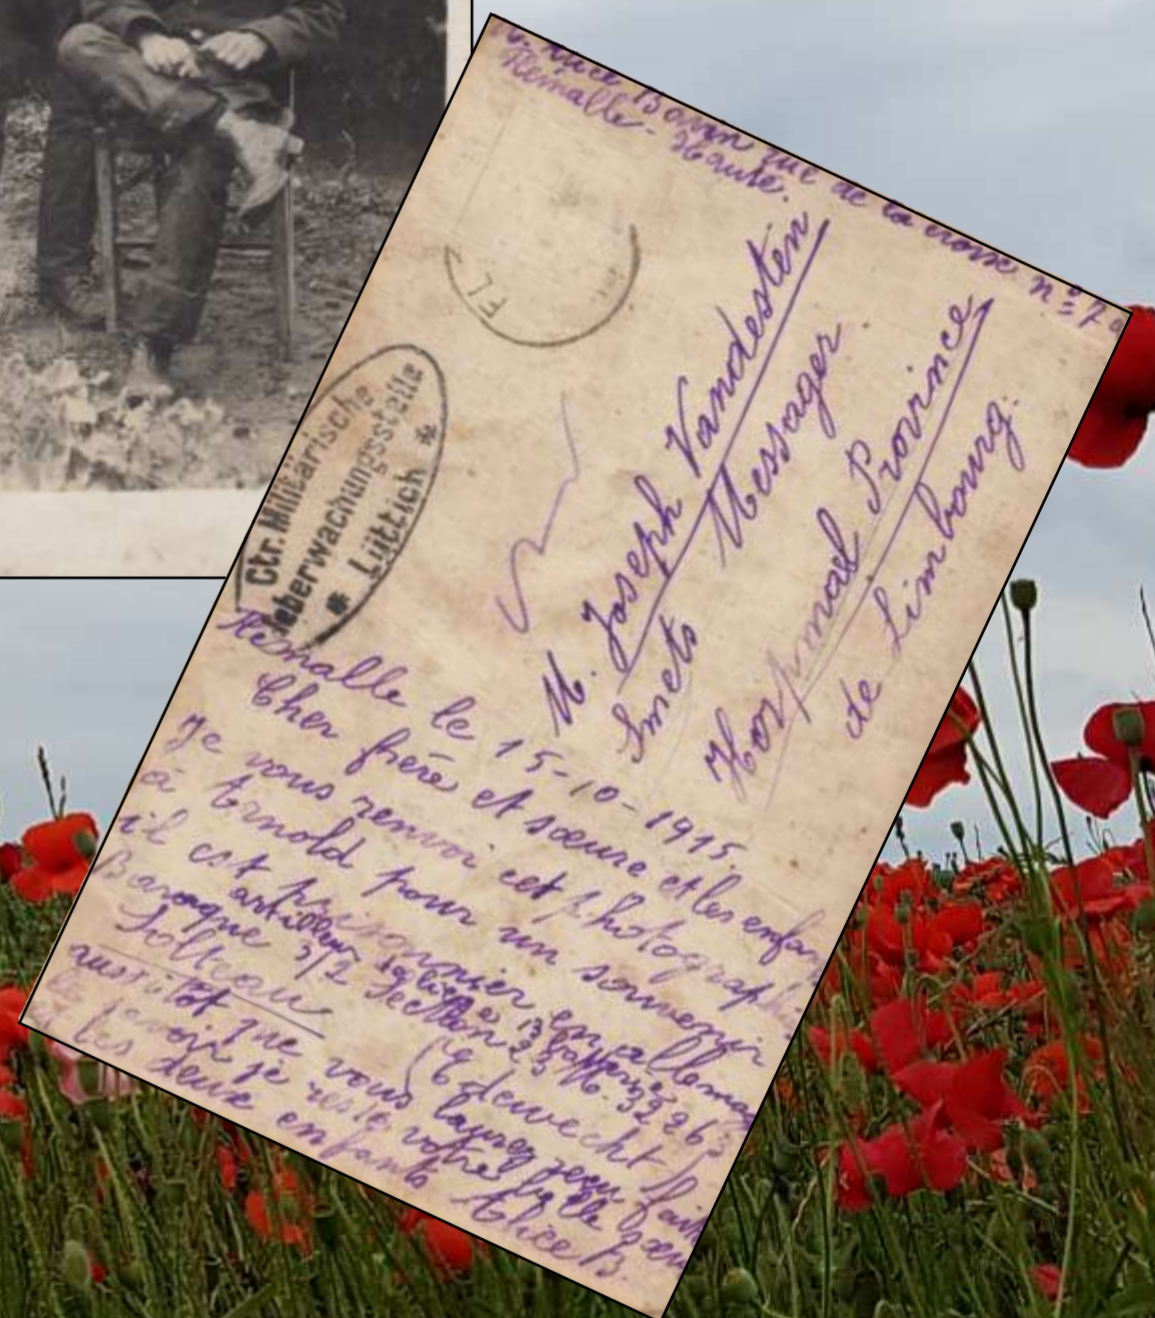 Alice Bovin rue de la croix n° 70
Hémalle-Haute.
FL
Ctr. Militärische
Ueberwachungsstelle
* Lüttich *
M. Joseph Vandesten
Smets Messager
Horpmael Province
de Limbourg.
Hémalle le 15-10-1915.
Cher frère et sœure et les enfan
Je vous renvoi cet photograph
à Arnold pour un souvenir
il est prisonnier en allemag
artilleur
Baraque 3/2 Section 23
Solteau (Edewecht
aussitôt que vous laurez reçu fait
le je reste votre belle sœur
les deux enfants Alice B.